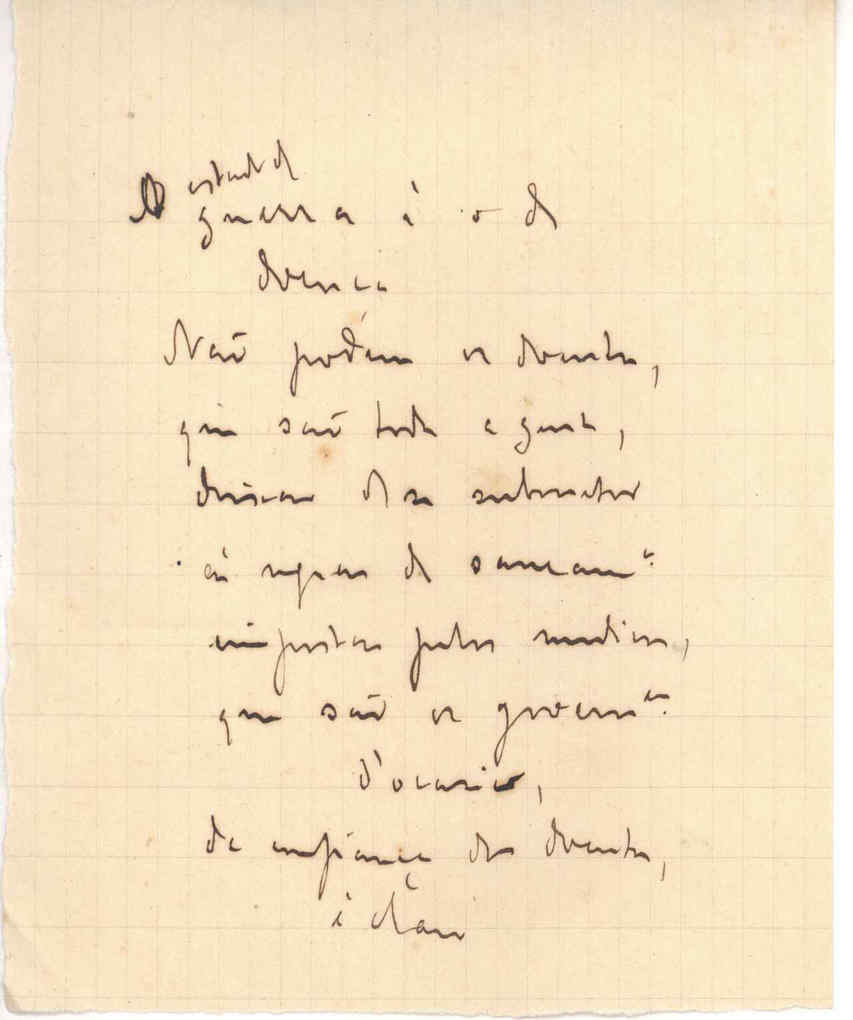 O estado de
guerra é o de
doença
Não podem os doentes,
que são toda a gente,
deixar de se submeter
ás regras de saneam.to
impostas pelos medicos,
que são os governos
d'ocasião,
da confiança dos doentes,
é claro